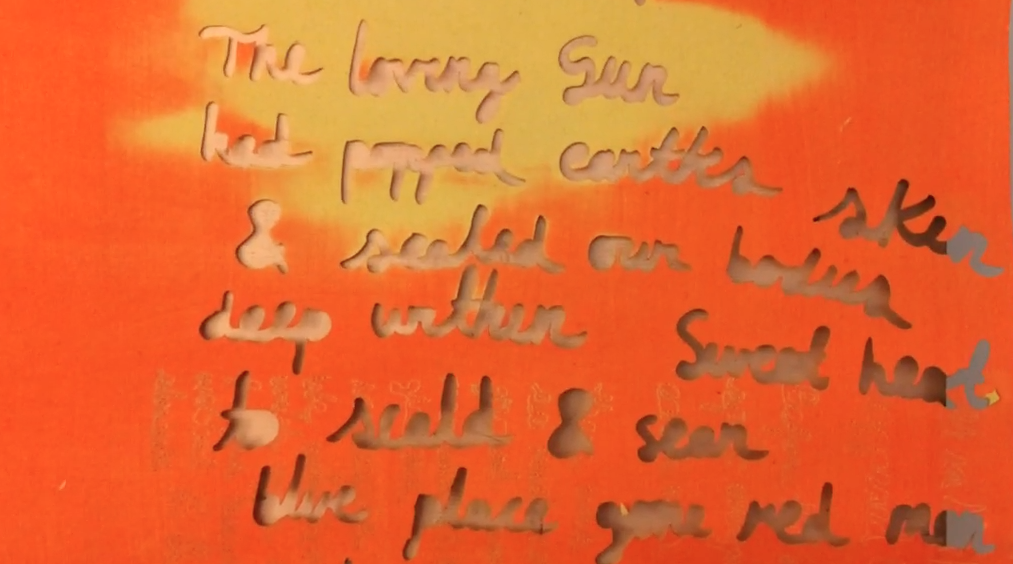 The loving Sun
had popped earths skin
& sealed our bodies
deep within Sweet heat
to scald & sear
blue place gone red man